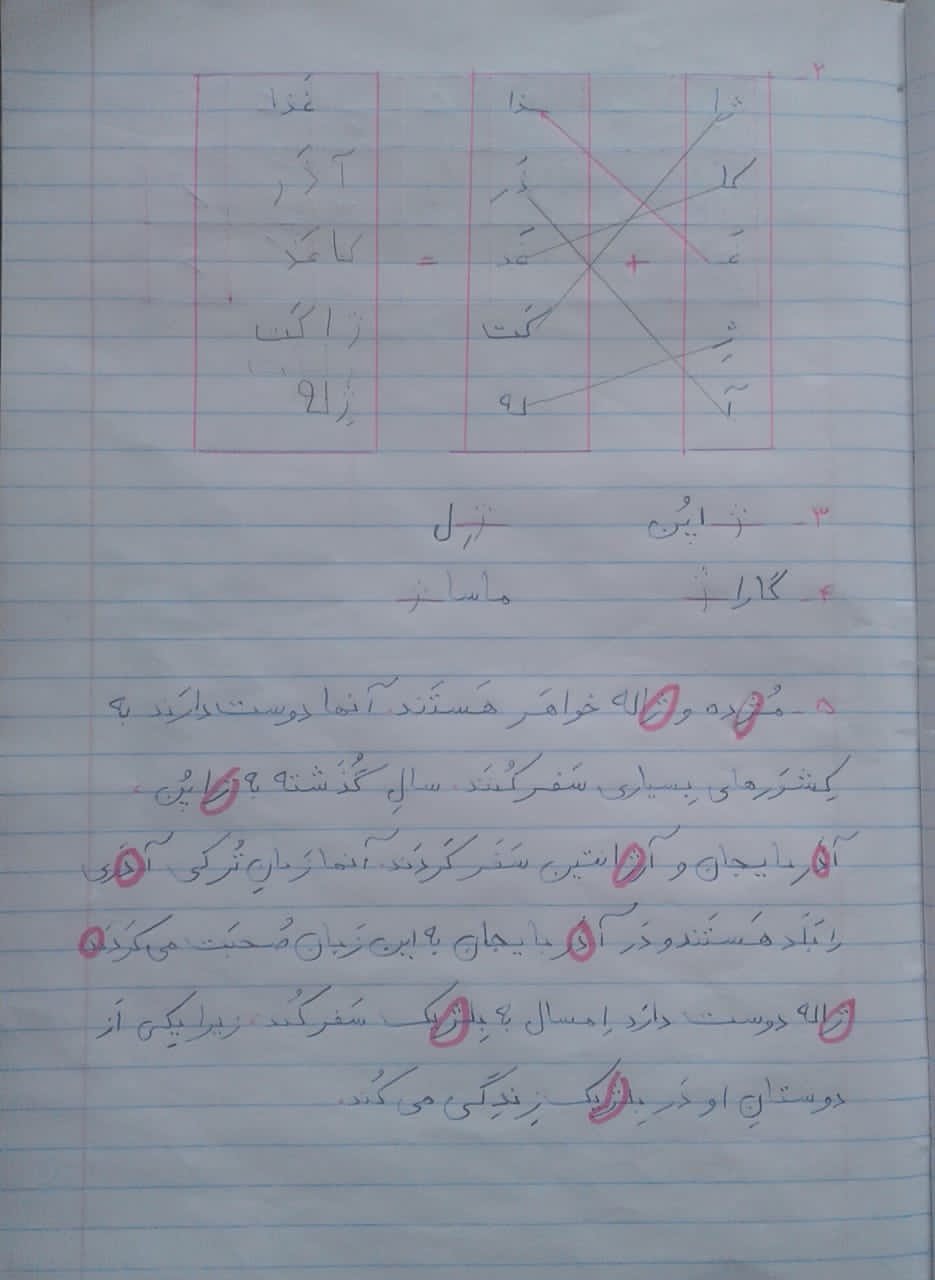 ۲-
ژا ـذا غَذا
کا ذَر آذَر
غَـ + غَذ = کاغَذ
ژِ کَت ژاکَت
آ له ژِله
۳- ژاپُن ژِل
۴- گاراژ ماساژ
۵- مُژده و ژاله خواهَر هَستَند. آنها دوست دارَند به
کِشوَرهای بِسیاری سَفَر کُنَند. سالِ گُذَشته به ژاپُن،
آذَربایجان و آرژانتین سَفَر کَردَند. آنها زَبانِ تُرکی آذَری
را بَلَد هَستَند و دَر آذَربایجان به این زَبان صُحبَت می‌کَردَند
ژاله دوست دارَد اِمسال به بِلژیک سَفَر کُنَد. زیرا یِکی اَز
دوستانِ او دَر بِلژیک زِندِگی می کُنَد.